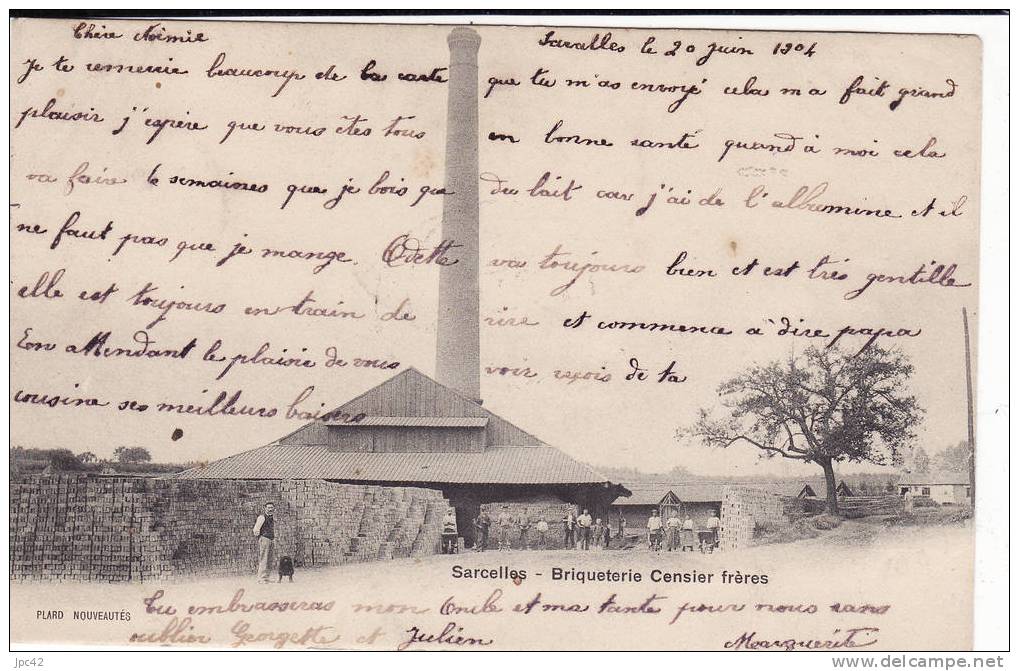 Chère Noémie
Sarcelles le 20 juin 1904
Je te remercie beaucoup de la carte que tu m'as envoyé cela m'a fait grand
plaisir j'espère que vous êtes tous en bonne santé quand à moi cela
va faire 6 semaines que je bois que du lait car j'ai de l'albumine et il
ne faut pas que je mange. Odette va toujours bien et est très gentille
elle est toujours en train de rire et commence à dire papa
En attendant le plaisir de vous voir reçois de ta
cousine ses meilleurs baisers
Sarcelles - Briqueterie Censier frères
PLARD NOUVEAUTÉS
Tu embrasseras mon Oncle et ma tante pour nous sans
oublier Georgette et Julien
Marguerite
jpc42
www.delcampe.net